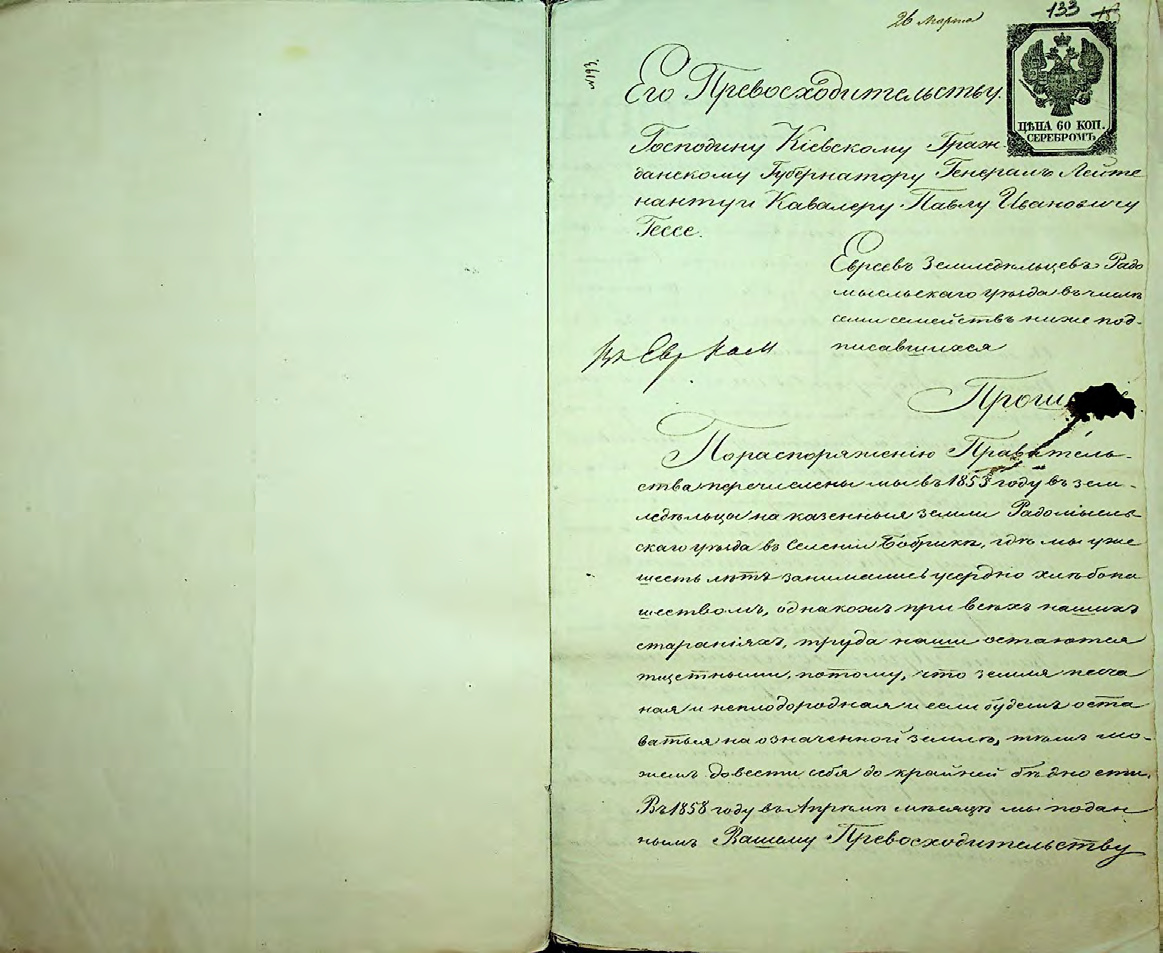 26 Марта
133
N193.
Его Превосходительству
ЦѢНА 60 КОП.
СЕРЕБРОМЪ
Господину Кіевскому Граж-
данскому Губернатору Генералъ Лейте
нанту и Кавалеру Павлу Ивановичу
Гессе.
Евреевъ Земледѣльцевъ Радо
мысльскаго уѣзда въ числѣ
семи семействъ ниже под-
писавшихся
Въ Евр
Проше
По распоряженію Правитель-
ства перечислены мы въ 1853 году въ зем-
ледѣльцы на казенныя земли Радомысль
скаго уѣзда въ Селеніи Бобрикѣ, гдѣ мы уже
шесть лѣтъ занимались усердно хлѣбопа
шествомъ, однакожъ при всѣхъ нашихъ
стараніяхъ, труда наши остаются
тщетными, потому, что земля песча
ная и неплодородная и если будемъ оста
ваться на означенной землѣ, тѣмъ мо-
жемъ довести себя до крайней бѣдности.
Въ 1858 году въ Апрѣлѣ мѣсяцѣ мы подан
нымъ Вашему Превосходительству